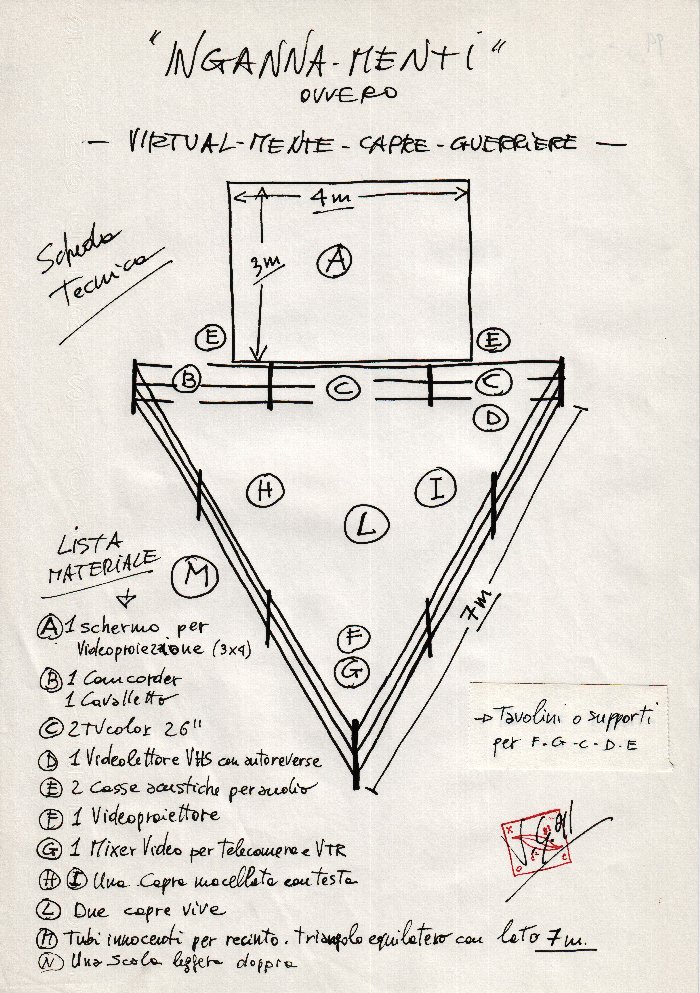 "INGANNA-MENTI"
OVVERO
— VIRTUAL-MENTE-CAPRE-GUERRIERE —
4m
Scheda
Tecnica
3m
A
E
E
B
C
C
D
H
I
L
LISTA
MATERIALE
M
7m
F
G
A 1 schermo per
Videoproiezione (3x4)
B 1 Camcorder
1 Cavalletto
C 2 TVcolor 26"
D 1 Videolettore VHS con autoreverse
E 2 Casse acustiche per audio
F 1 Videoproiettore
G 1 Mixer Video per telecamera e VTR
H I Una Capra macellata con testa
L Due capre vive
M Tubi innocenti per recinto. triangolo equilatero con lato 7m.
N Una Scala leggera doppia
→ Tavolini o supporti
per F-G-C-D-E